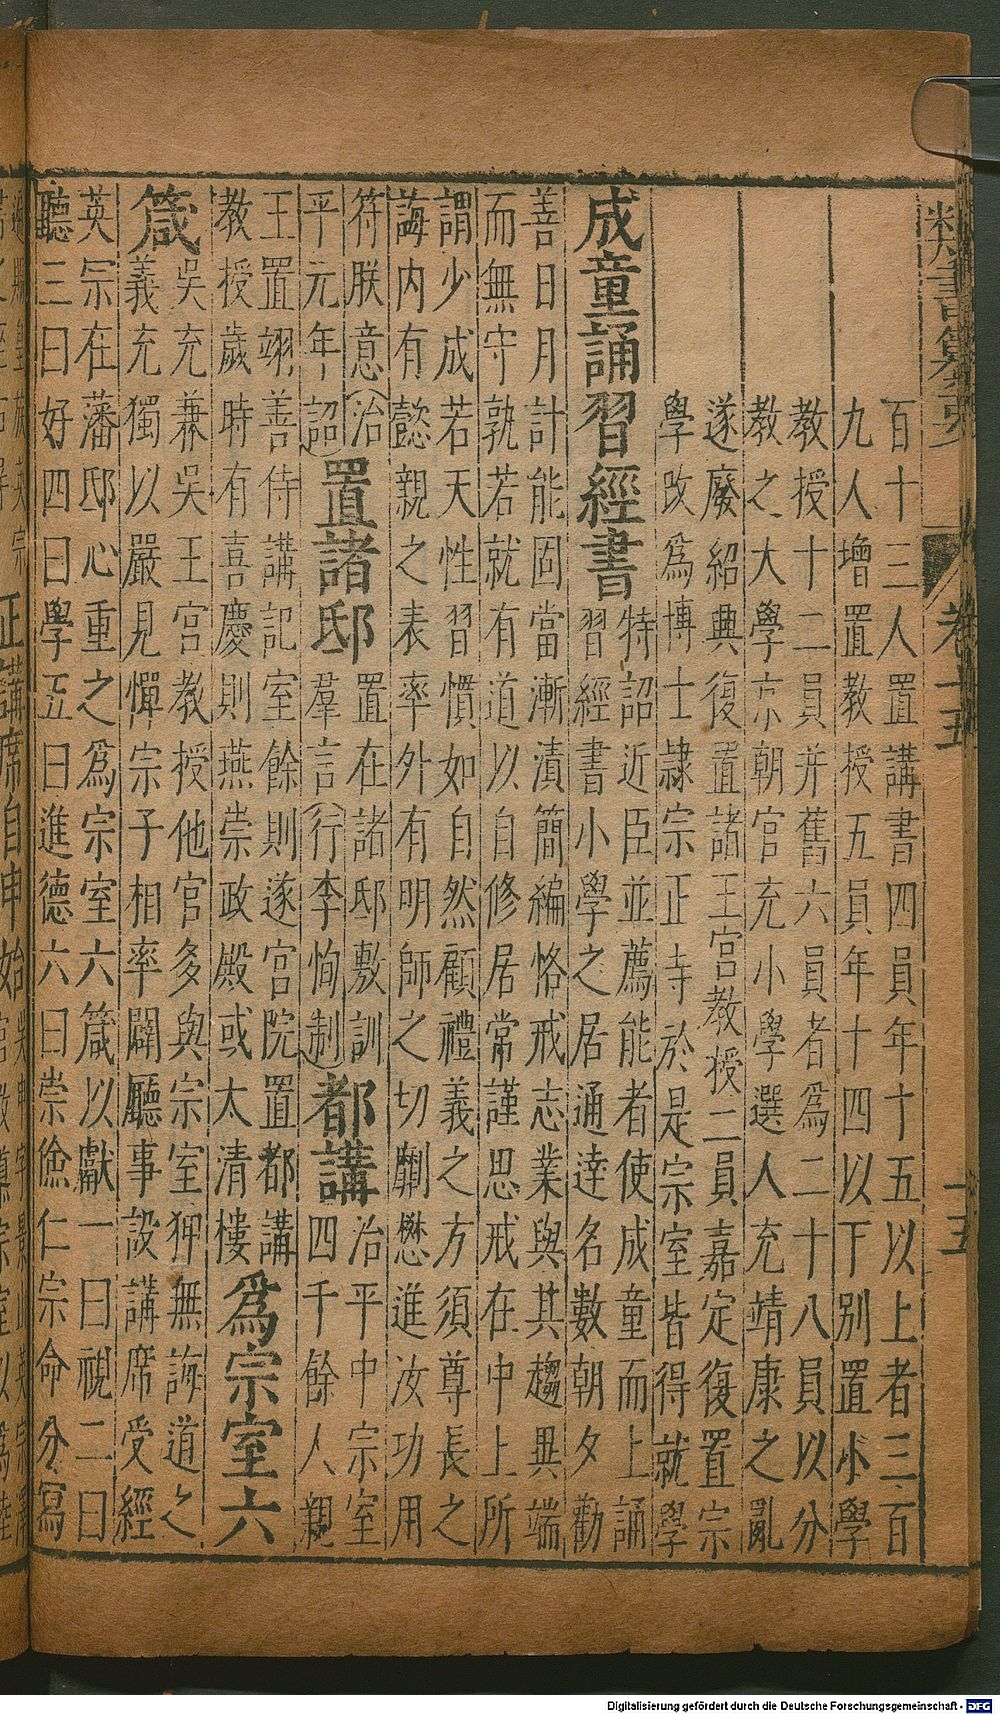 類書纂要 卷十五 十五
百十三人置講書四員年十五以上者三百
九人增置教授五員年十四以下別置小學
教授十二員并舊六員者為二十八員以分
教之大學京朝官充小學選人充靖康之亂
遂廢紹興復置諸王宮教授二員嘉定復置宗
學改為博士隷宗正寺於是宗室皆得就學
成童誦習經書
特詔近臣並薦能者使成童而上誦
習經書小學之居通達名數朝夕勸
善日月計能固當漸漬簡編恪戒志業與其趨異端
而無守孰若就有道以自修居常謹思戒在中上所
謂少成若天性習慣如自然顧禮義之方須尊長之
誨内有懿親之表率外有明師之切劘懋進汝功用
符朕意(治
平元年詔)
置諸邸
置在諸邸敷訓
羣言(行李恂制)
都講
治平中宗室
四千餘人親
王置翊善侍講記室餘則遂宮院置都講
教授歲時有喜慶則燕崇政殿或太清樓
為宗室六
箴
吳充兼吳王宮教授他官多與宗室狎無誨道之
義充獨以嚴見憚宗子相率闢廳事設講席受經
英宗在藩邸心重之為宗室六箴以獻一曰視二曰
聽三曰好四曰學五曰進德六曰崇儉仁宗命分寫
正講席自申始
Digitalisierung gefördert durch die Deutsche Forschungsgemeinschaft - DFG